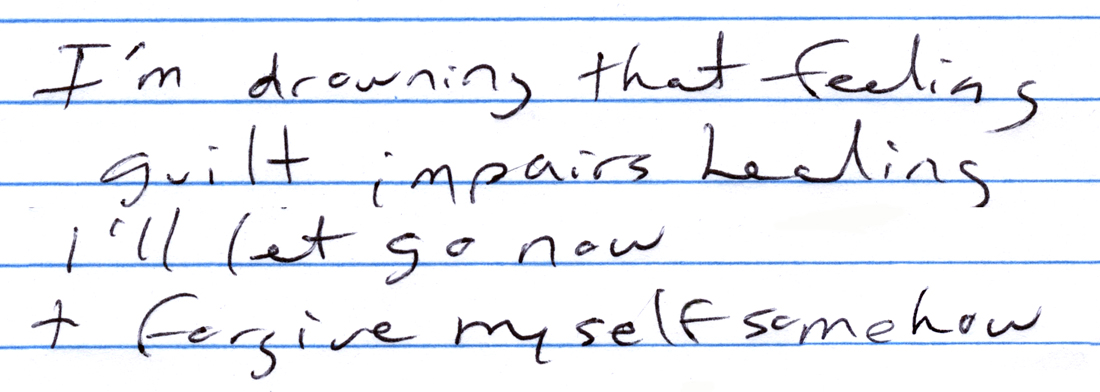 I'm drowning that feeling
guilt impairs healing
I'll let go now
+ forgive myself somehow